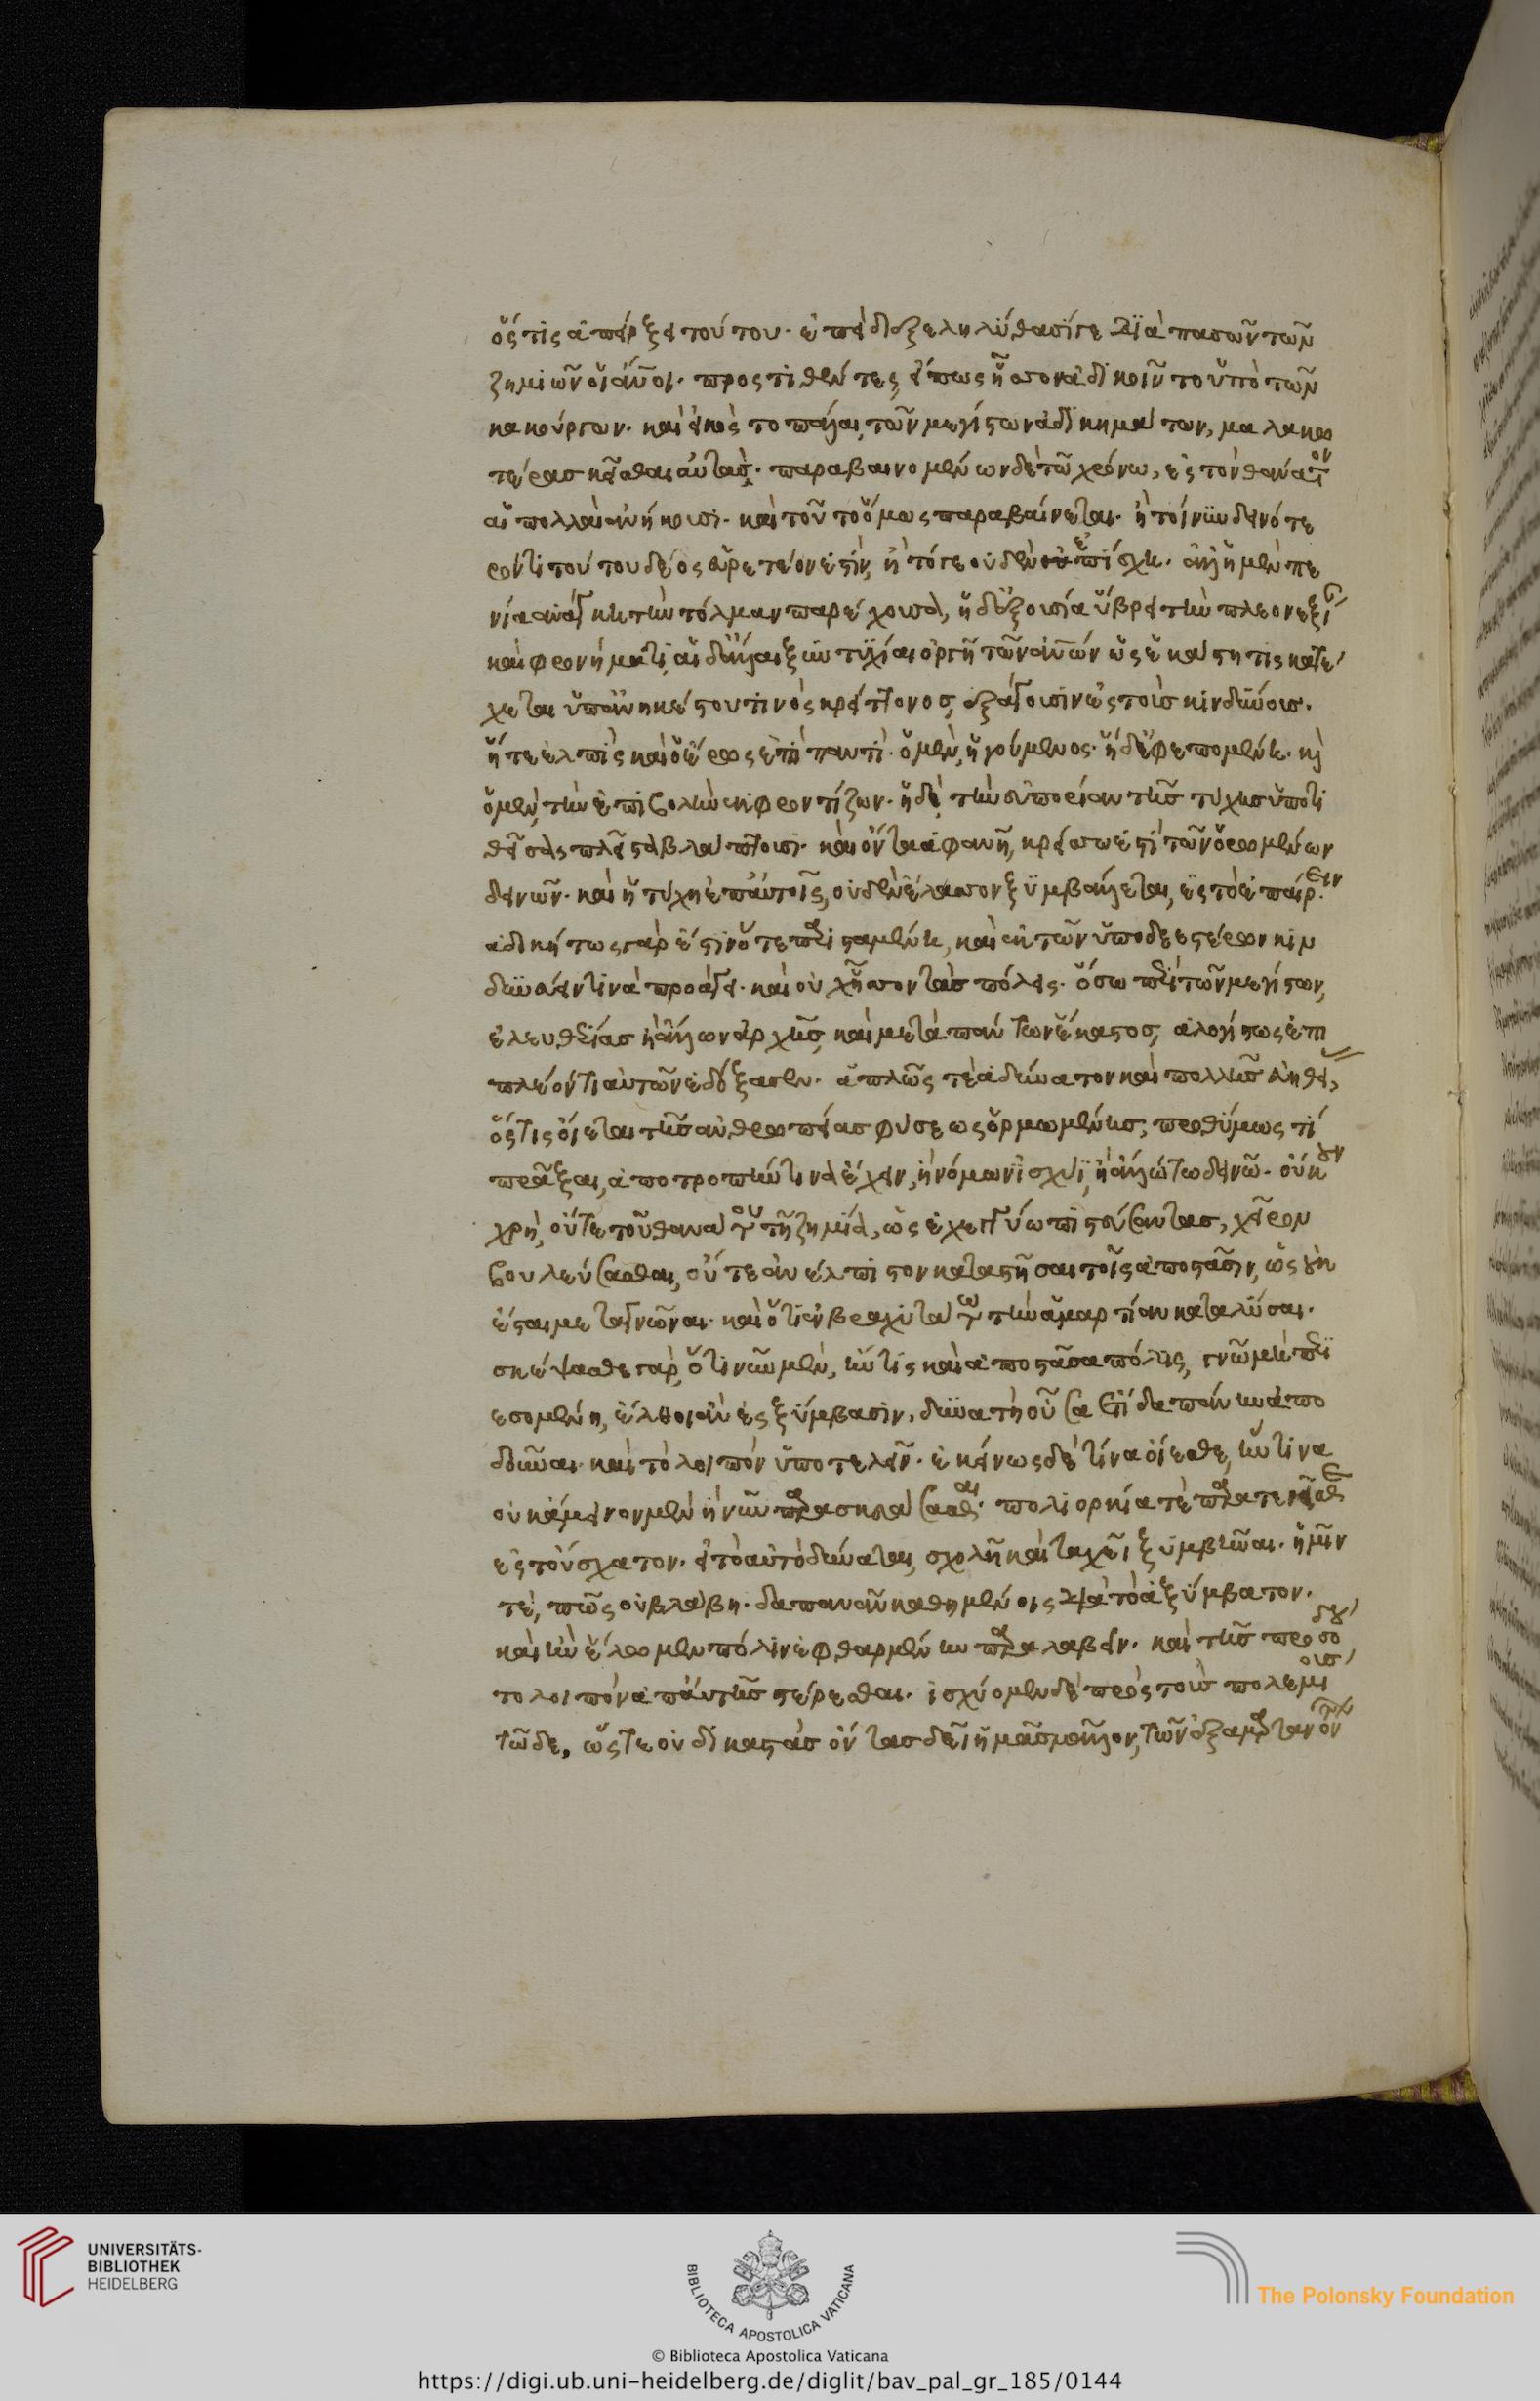 ὅστις ἀπείρξει τούτου· ἐπεὶ διεξεληλύθασί γε διὰ πασῶν τῶν
ζημιῶν οἱ ἄνοι· προστιθέντες, εἴ πως ἧσσον ἀδικοῖντο ὑπὸ τῶν
κακούργων· καὶ εἰκὸς τὸ πάλαι, τῶν μεγίστων ἀδικημάτων, μαλακω
τέρας κεῖσθαι αὐτάς· παραβαινομένων δὲ τῶ χρόνω, ἐς τὸν θάνατον
αἱ πολλαὶ ἀνήκουσι· καὶ τοῦτο ὅμως παραβαίνεται· ἢ τοίνυν δεινότε
ρόν τι τούτου δέος εὑρετέον ἐστίν, ἢ τόγε οὐδὲν ἐπίσχει· ἀλλ' ἡ μὲν πε
νία ἀνάγκη τὴν τόλμαν παρέχουσα, ἡ δ' ἐξουσία ὕβρει τὴν πλεονεξίαν
καὶ φρονήματι, αἱ δ' ἄλλαι ξυντυχίαι ὀργῆ τῶν ἀνων ὡς ἑκάστη τις κατέ
χεται ὑπ' ἀνηκέστου τινὸς κρείττονος, ἐξάγουσιν ἐς τοὺς κινδύνους.
ἥ τε ἐλπὶς καὶ ὁ ἔρως ἐπὶ παντί· ὁ μὲν, ἡγούμενος· ἡ δ' ἐφεπομένη· κὶ
ὁ μὲν, τὴν ἐπιβολὴν ἐκφροντίζων· ἡ δὲ, τὴν εὐπορίαν τῆς τύχης ὑποτι
θεῖσα, πλεῖστα βλάπτουσι· καὶ ὄντα ἀφανῆ, κρείσσω ἐστὶ τῶν ὁρωμένων
δεινῶν· καὶ ἡ τύχη ἐπ' αὐτοῖς, οὐδὲν ἔλασσον ξυμβάλλεται, ἐς τὸ ἐπαίρειν·
ἀδοκήτως γὰρ ἔστιν ὅτε παρισταμένη, καὶ ἐκ τῶν ὑποδεεστέρων κιν
δυνεύειν τινὰ προάγει· καὶ οὐχ ἧσσον τὰς πόλεις· ὅσω περὶ τῶν μεγίστων,
ἐλευθερίας ἢ ἄλλων ἀρχῆς, καὶ μετὰ πάντων ἕκαστος, ἀλογίστως ἐπι
πλέον τι αὐτῶν ἐδόξασεν· ἁπλῶς τὲ ἀδύνατον καὶ πολλῆς εὐηθείας,
ὅστις οἴεται τῆς ἀνθρωπείας φύσεως ὁρμωμένης, προθύμως τί
πρᾶξαι, ἀποτροπήν τινα ἔχειν, ἢ νόμων ἰσχύϊ, ἢ ἄλλω τω δεινῶ· οὔκουν
χρὴ, οὔτε τοῦ θανάτου τῆ ζημία, ὡς ἐχεγγύω πιστεύσαντας, χεῖρον
βουλεύσασθαι, οὔτε ἀνέλπιστον καταστῆσαι τοῖς ἀποστᾶσιν, ὡς οὐκ
ἔσται μεταγνῶναι· καὶ ὅτι ἐν βραχυτάτω τὴν ἁμαρτίαν καταλῦσαι.
σκέψασθε γὰρ, ὅτι νῦν μὲν, ἤν τις καὶ ἀποστᾶσα πόλις, γνῶ μὴ περι
εσομένη, ἔλθοι ἂν ἐς ξύμβασιν, δυνατὴ οὖσα ἔτι δαπάνην ἀπο
δοῦναι· καὶ τὸ λοιπὸν ὑποτελεῖν· ἐκείνως δὲ τίνα οἴεσθε, ἥντινα
οὐκ ἄμεινον μὲν ἢ νῦν παρασκευάσασθαι· πολιορκία τὲ παρατενεῖσθαι
ἐς τοὔσχατον· εἰ τὸ αὐτὸ δύναται, σχολῆ καὶ ταχεῖ ξυμβῆναι· ἡμῖν
τὲ, πῶς οὐ βλάβη· δαπανᾶν καθημένοις διὰ τὸ ἀξύμβατον.
καὶ ἢν ἕλωμεν πόλιν ἐφθαρμένην παραλαβεῖν· καὶ τῆς προσόδου
τολοιπὸν ἀπ' αὐτῆς στέρεσθαι· ἰσχύομεν δὲ πρὸς τοὺς πολεμίους
τῶδε, ὥστε οὐ δικαστὰς ὄντας δεῖ ἡμᾶς μᾶλλον, τῶν ἐξαμαρτανόντων
UNIVERSITÄTS-
BIBLIOTHEK
HEIDELBERG
BIBLIOTECA APOSTOLICA VATICANA
The Polonsky Foundation
© Biblioteca Apostolica Vaticana
https://digi.ub.uni-heidelberg.de/diglit/bav_pal_gr_185/0144